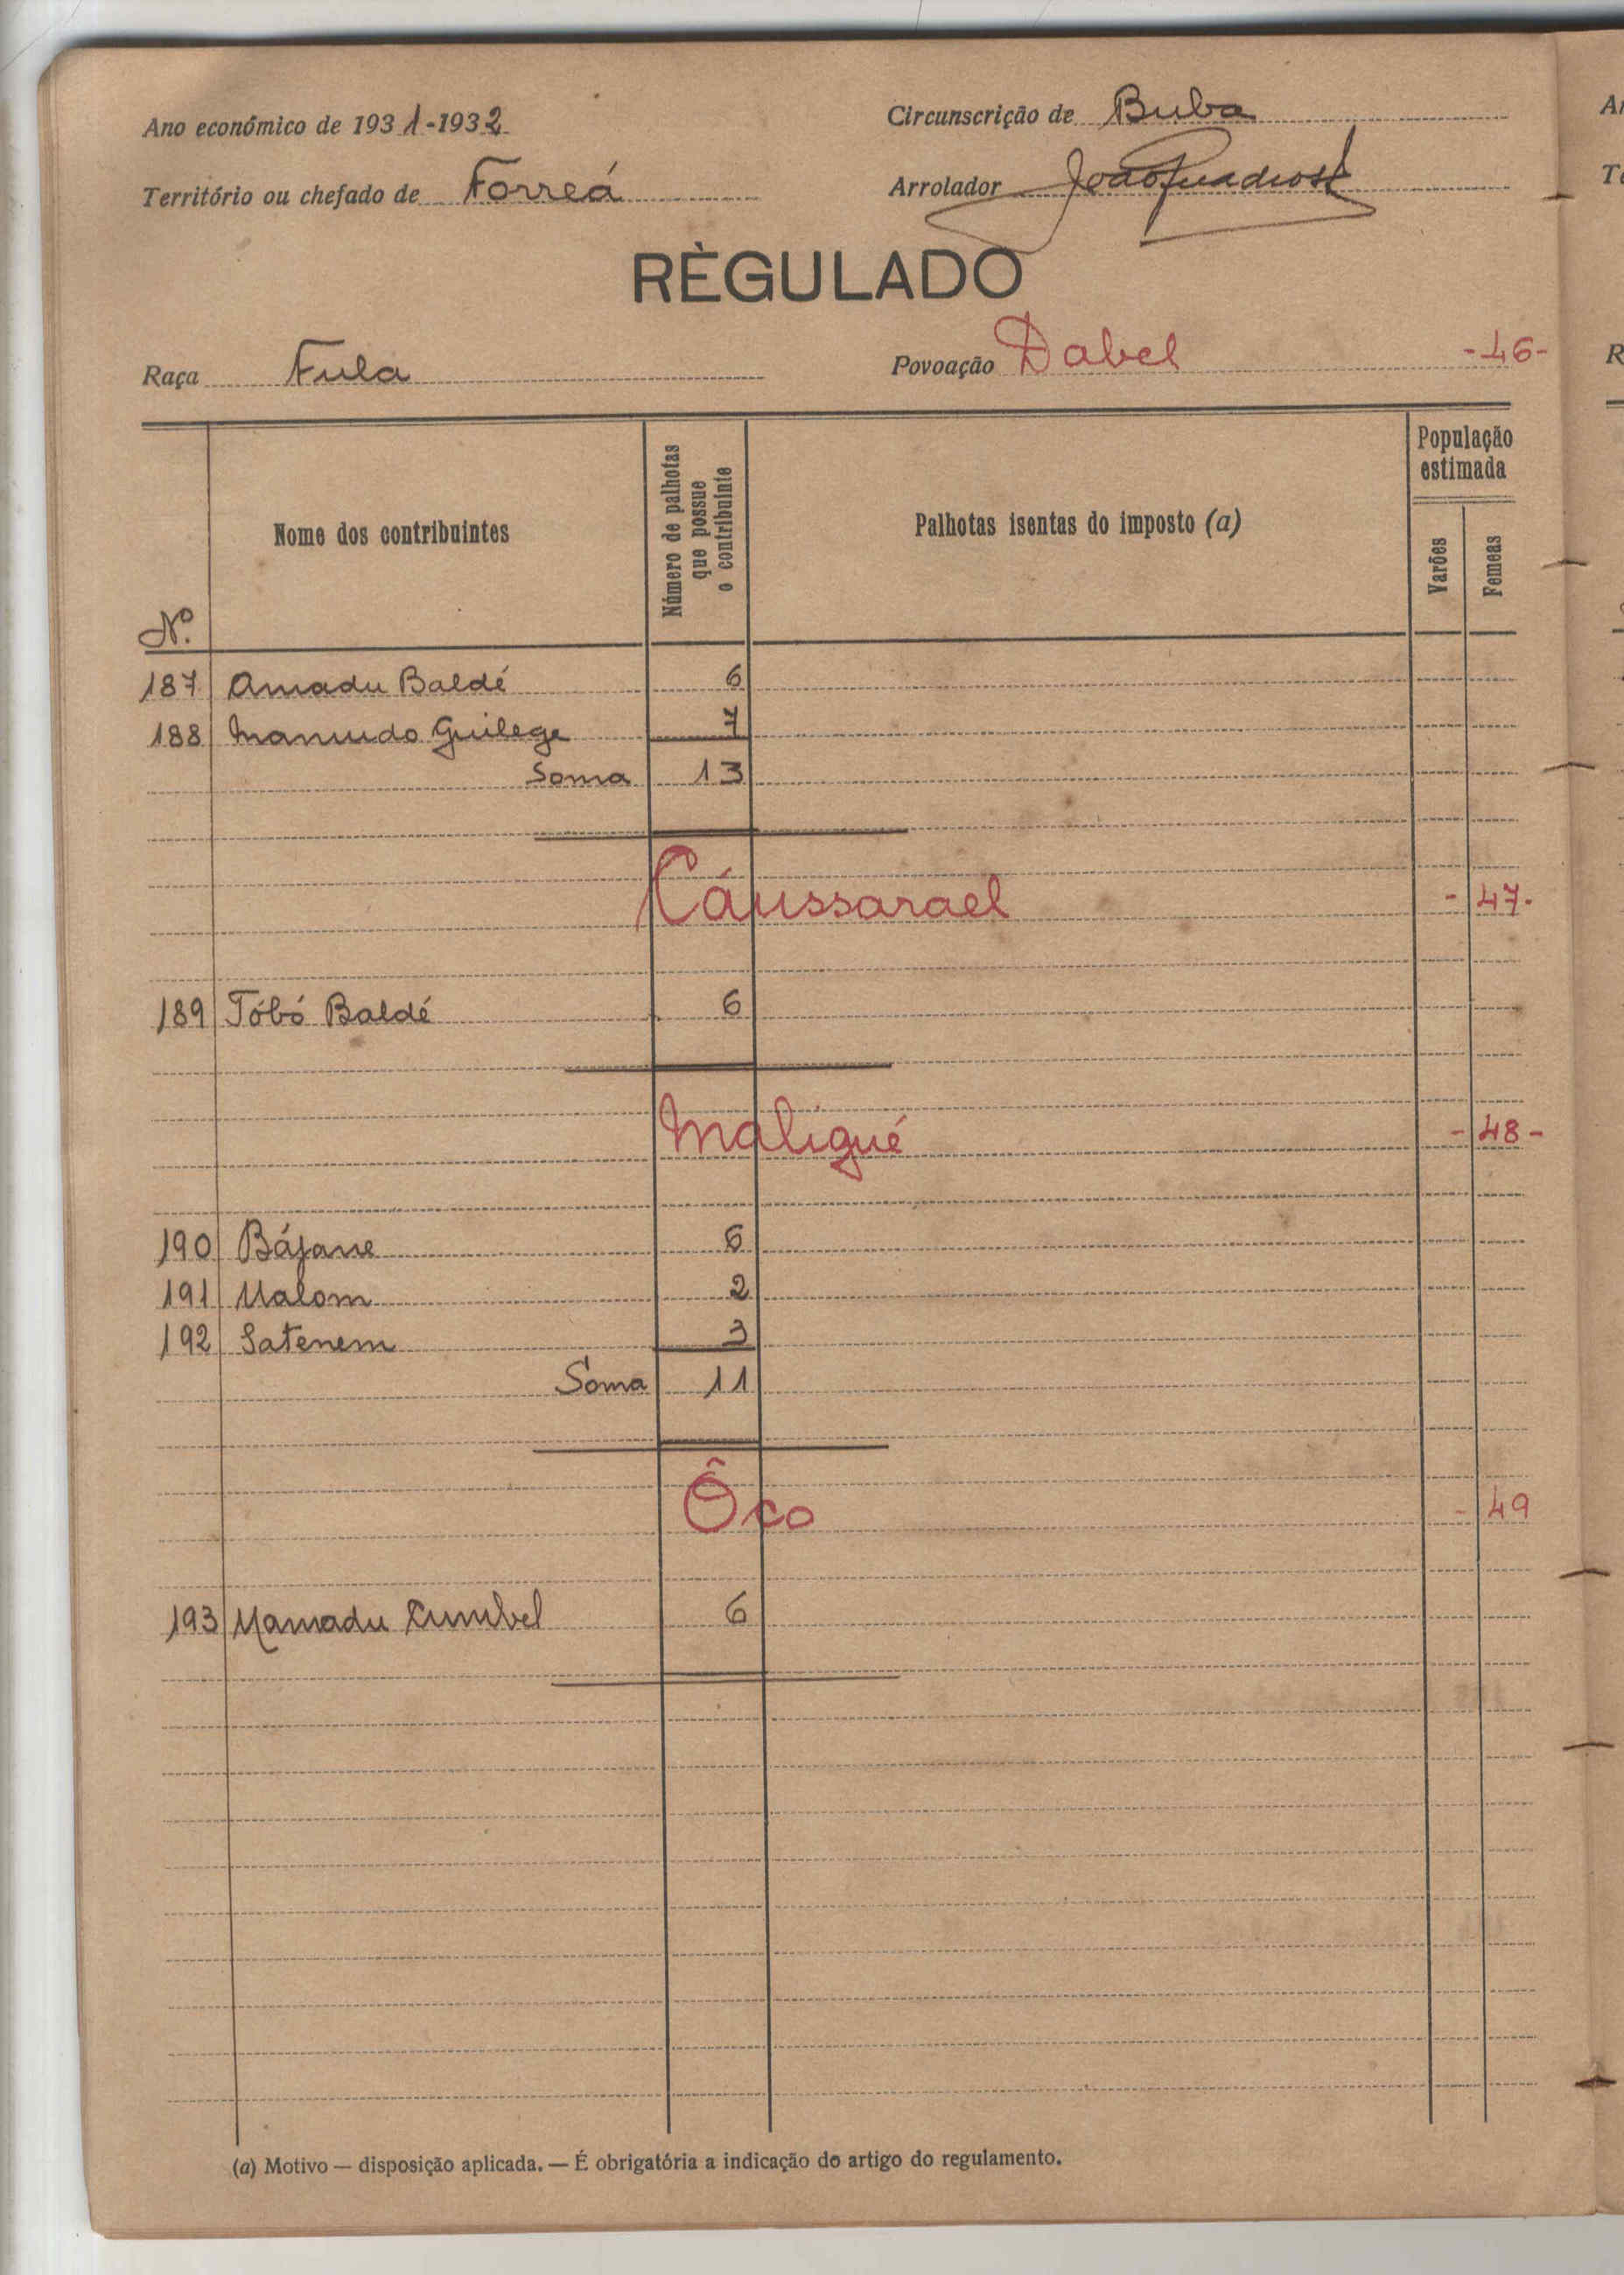 Ano económico de 1931-1932
Circunscrição de Buba
Território ou chefado de Forreá
Arrolador
RÈGULADO
Raça Fula
Povoação Dabel -46-
Nº.
Nome dos contribuintes
Número de palhotas que possue o contribuinte
Palhotas isentas do imposto (a)
População estimada
Varões
Femeas
187 Amadu Baldé 6
188 Mamudo Guilege 7
Soma 13
Cáussarael - 47-
189 Tóbó Baldé 6
Maligué - 48 -
190 Bájane 6
191 Malom 2
192 Satenem 3
Soma 11
Ôco - 49
193 Mamadu Cumbel 6
(a) Motivo — disposição aplicada. — É obrigatória a indicação do artigo do regulamento.